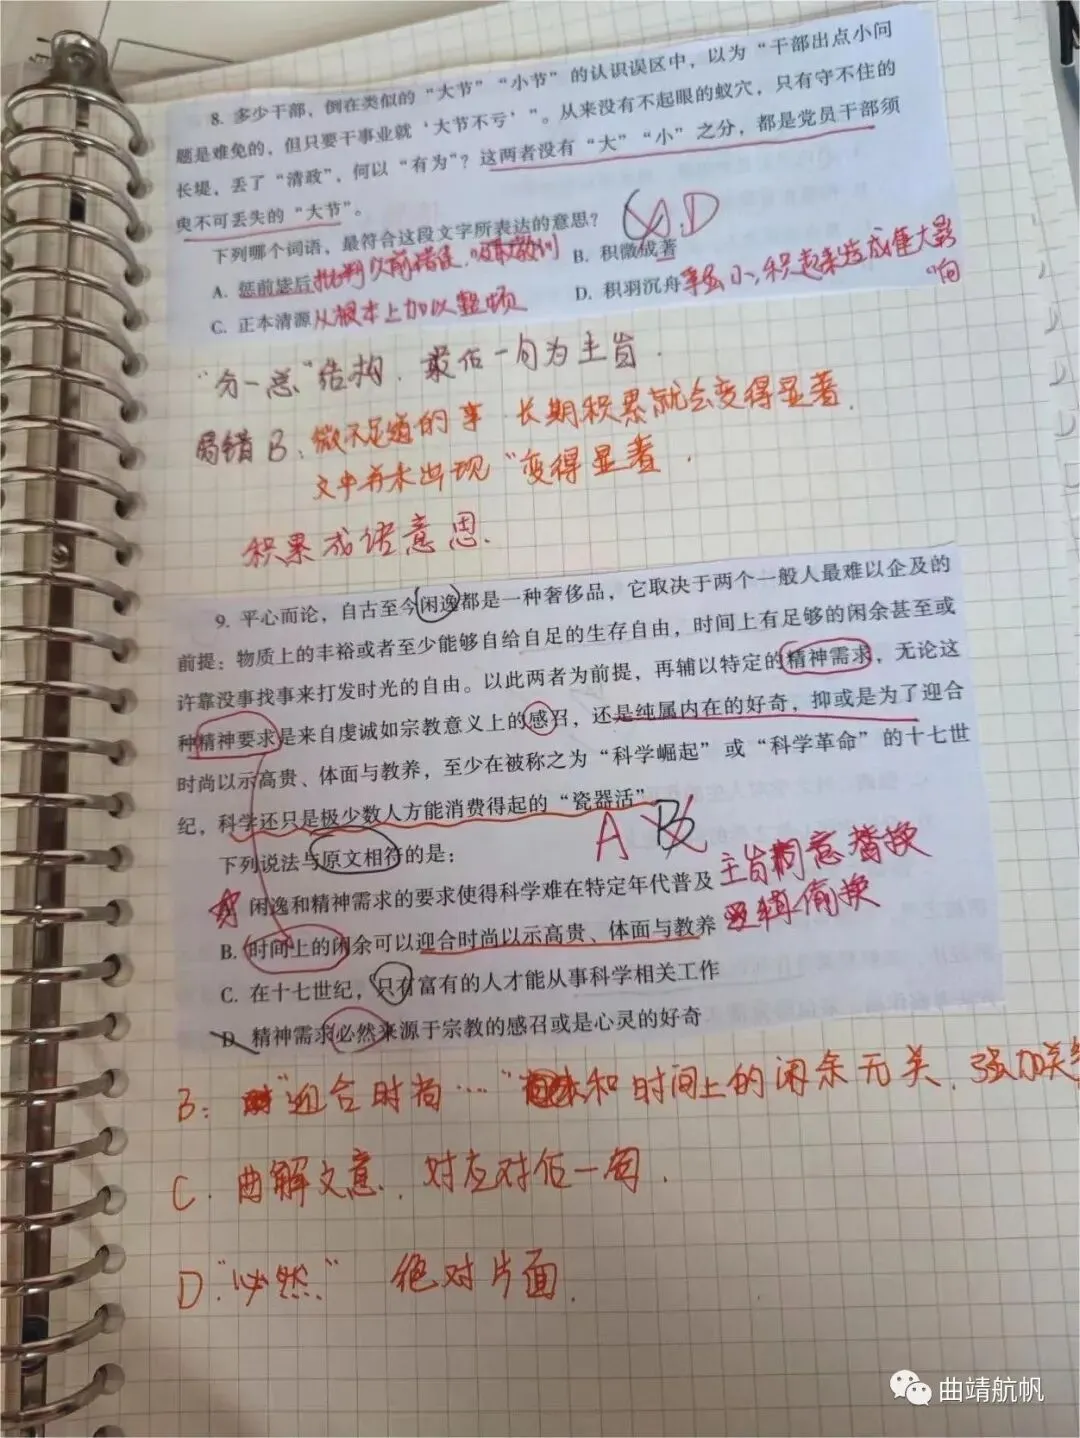 8. 多少干部，倒在类似的“大节”“小节”的认识误区中，以为“干部出点小问
题是难免的，但只要干事业就‘大节不亏’”。从来没有不起眼的蚁穴，只有守不住的
长堤，丢了“清政”，何以“有为”？这两者没有“大”“小”之分，都是党员干部须
臾不可丢失的“大节”。
下列哪个词语，最符合这段文字所表达的意思？
A.D
A. 惩前毖后 批判以前错误，吸取教训
B. 积微成著
C. 正本清源 从根本上加以整顿
D. 积羽沉舟 事虽小，积起来造成重大影
响
“分一总”结构，最后一句为主旨.
易错B：微不足道的事 长期积累就会变得显著.
文中并未出现“变得显著.
积累成语意思.
9. 平心而论，自古至今闲逸都是一种奢侈品，它取决于两个一般人最难以企及的
前提：物质上的丰裕或者至少能够自给自足的生存自由，时间上有足够的闲余甚至或
许靠没事找事来打发时光的自由。以此两者为前提，再辅以特定的精神需求，无论这
种精神要求是来自虔诚如宗教意义上的感召，还是纯属内在的好奇，抑或是为了迎合
时尚以示高贵、体面与教养，至少在被称之为“科学崛起”或“科学革命”的十七世
纪，科学还只是极少数人方能消费得起的“瓷器活”
A B
下列说法与原文相符的是：
闲逸和精神需求的要求使得科学难在特定年代普及 主旨同意替换
B. 时间上的闲余可以迎合时尚以示高贵、体面与教养 逻辑偷换
C. 在十七世纪，只有富有的人才能从事科学相关工作
D. 精神需求必然来源于宗教的感召或是心灵的好奇
B： “迎合时尚…” 和时间上的闲余无关，强加关
C. 曲解文意，对应对后一句.
D.“必然” 绝对片面.
曲靖航帆